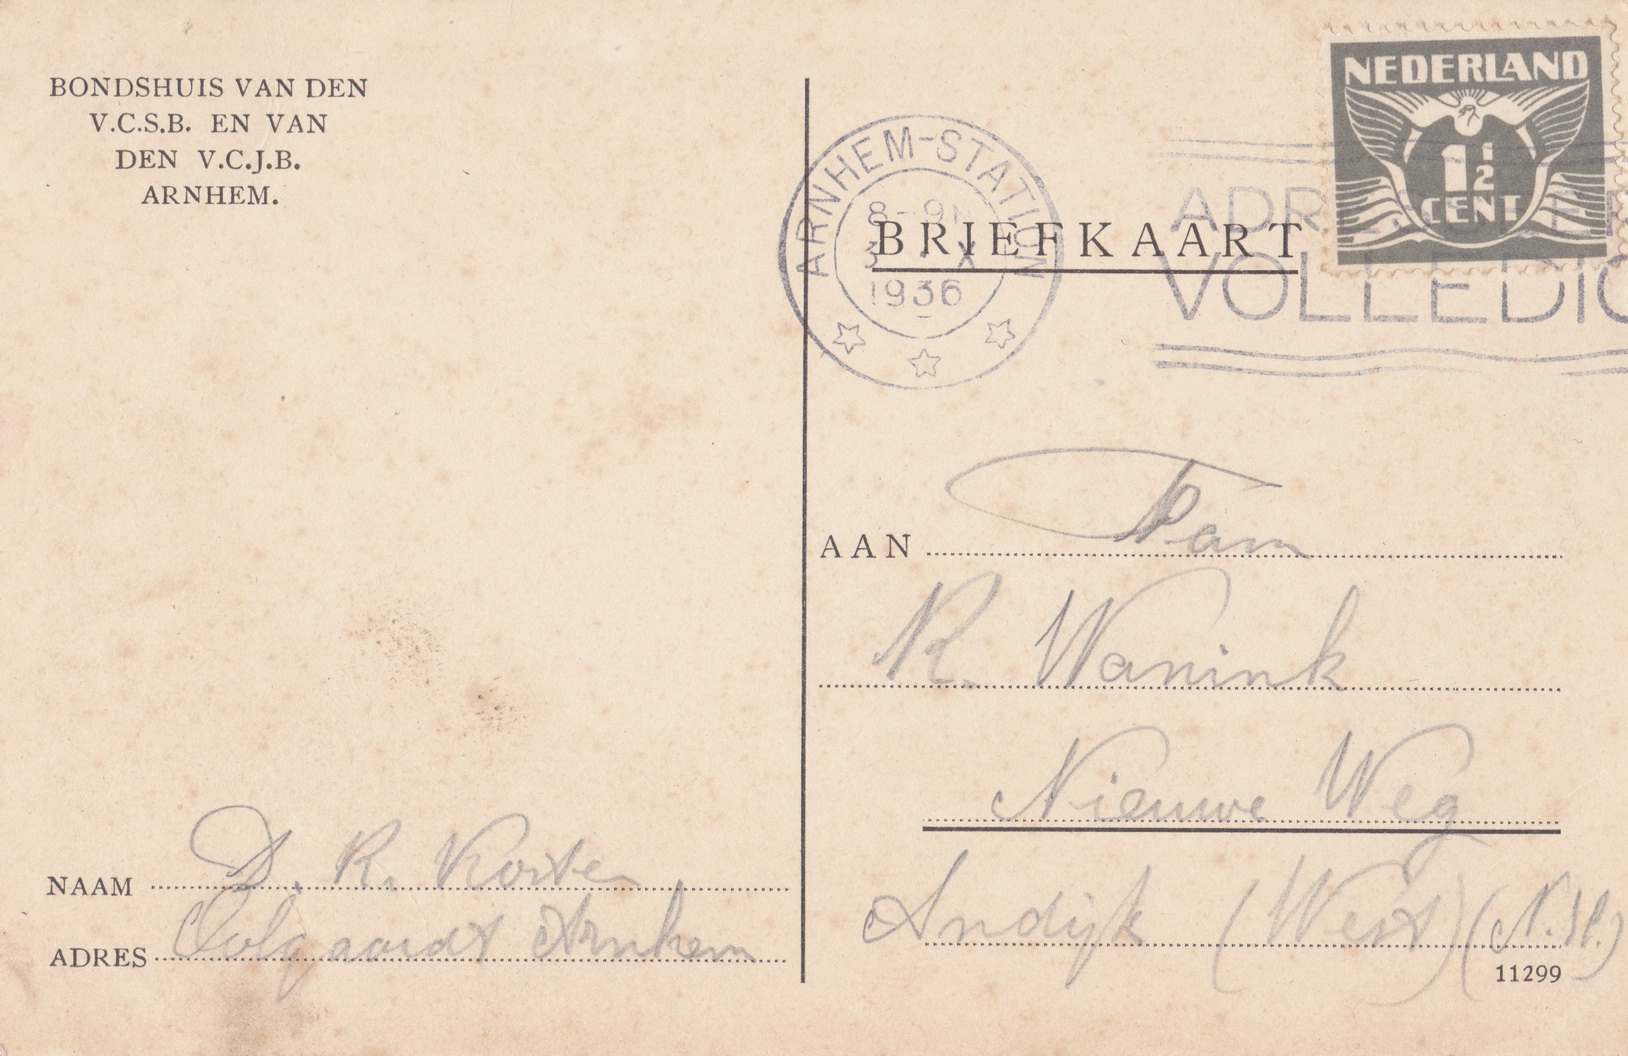 BONDSHUIS VAN DEN
V.C.S.B. EN VAN
DEN V.C.J.B.
ARNHEM.
NEDERLAND
1½
CENT
ARNHEM-STATION
8-9N
3 X
1936
VOLLEDIG
BRIEFKAART
AAN Fam
R. Wanink
Nieuwe Weg
Andijk (West) (N.H.)
11299
NAAM D. R. Korten
ADRES Arnhem